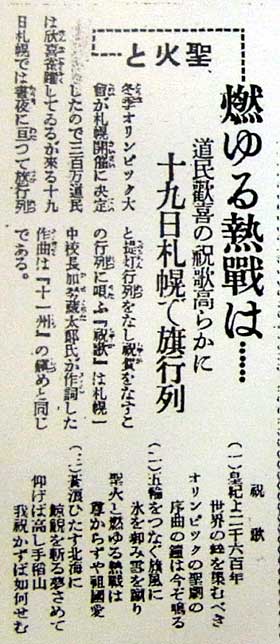 聖火と
燃ゆる熱戰は……
道民歡喜の祝歌高らかに
十九日札幌で旗行列
冬季オリンピック大
會が札幌開催に決定
したので三百万道民
は欣喜雀躍してゐるが來る十九
日札幌では晝夜に亘つて旗行列
と提灯行列をなし祝賀をなすこ
の行列に唄ふ『祝歌』は札幌一
中校長加　藏太郎氏が作詞した
作曲は『十一州』の鎭めと同じ
である。
祝歌
(一)皇紀よ二千六百年
世界の蜂を集むべき
オリンピックの聖劇の
序曲の鐘は今ぞ鳴る
(二)五輪をつなぐ旗風に
氷を刻み雪を蹴り
聖火と燃ゆる熱戰は
尊からずや祖國愛
(三)蒼溟ひたす北海に
鯨鯢を斬る夢さめて
仰げば高し手稲山
我祝かずば如何せむ